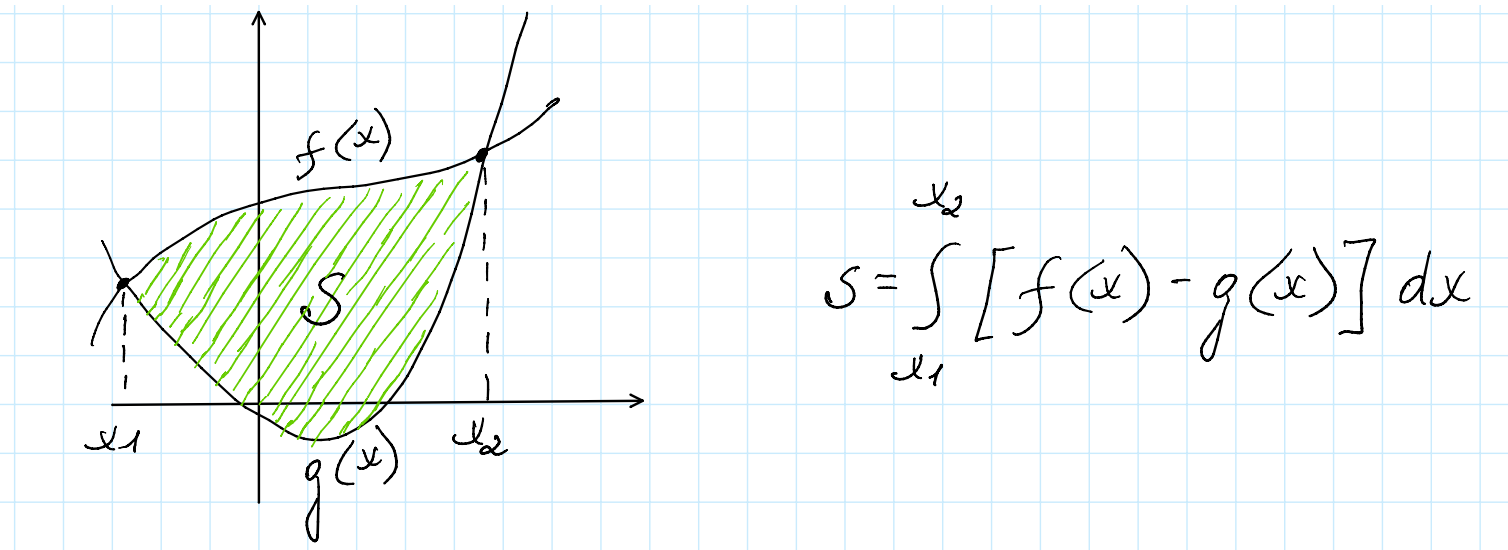 f(x)
S
x1
x2
g(x)
S = ∫ x1 x2 [f(x) - g(x)] dx